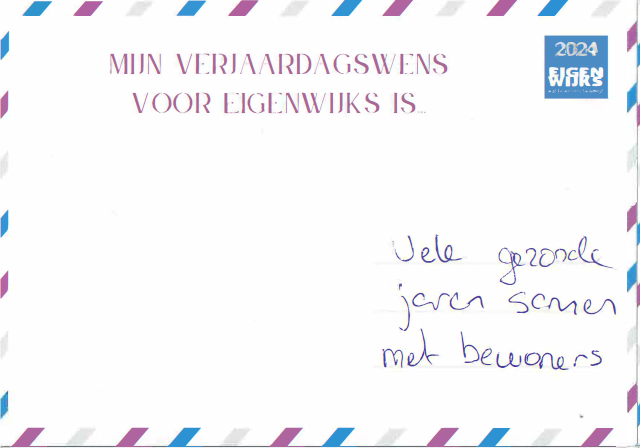 MIJN VERJAARDAGSWENS
VOOR EIGENWIJKS IS...
2024
EIGEN
WIJKS
Vele gezonde
jaren samen
met bewoners